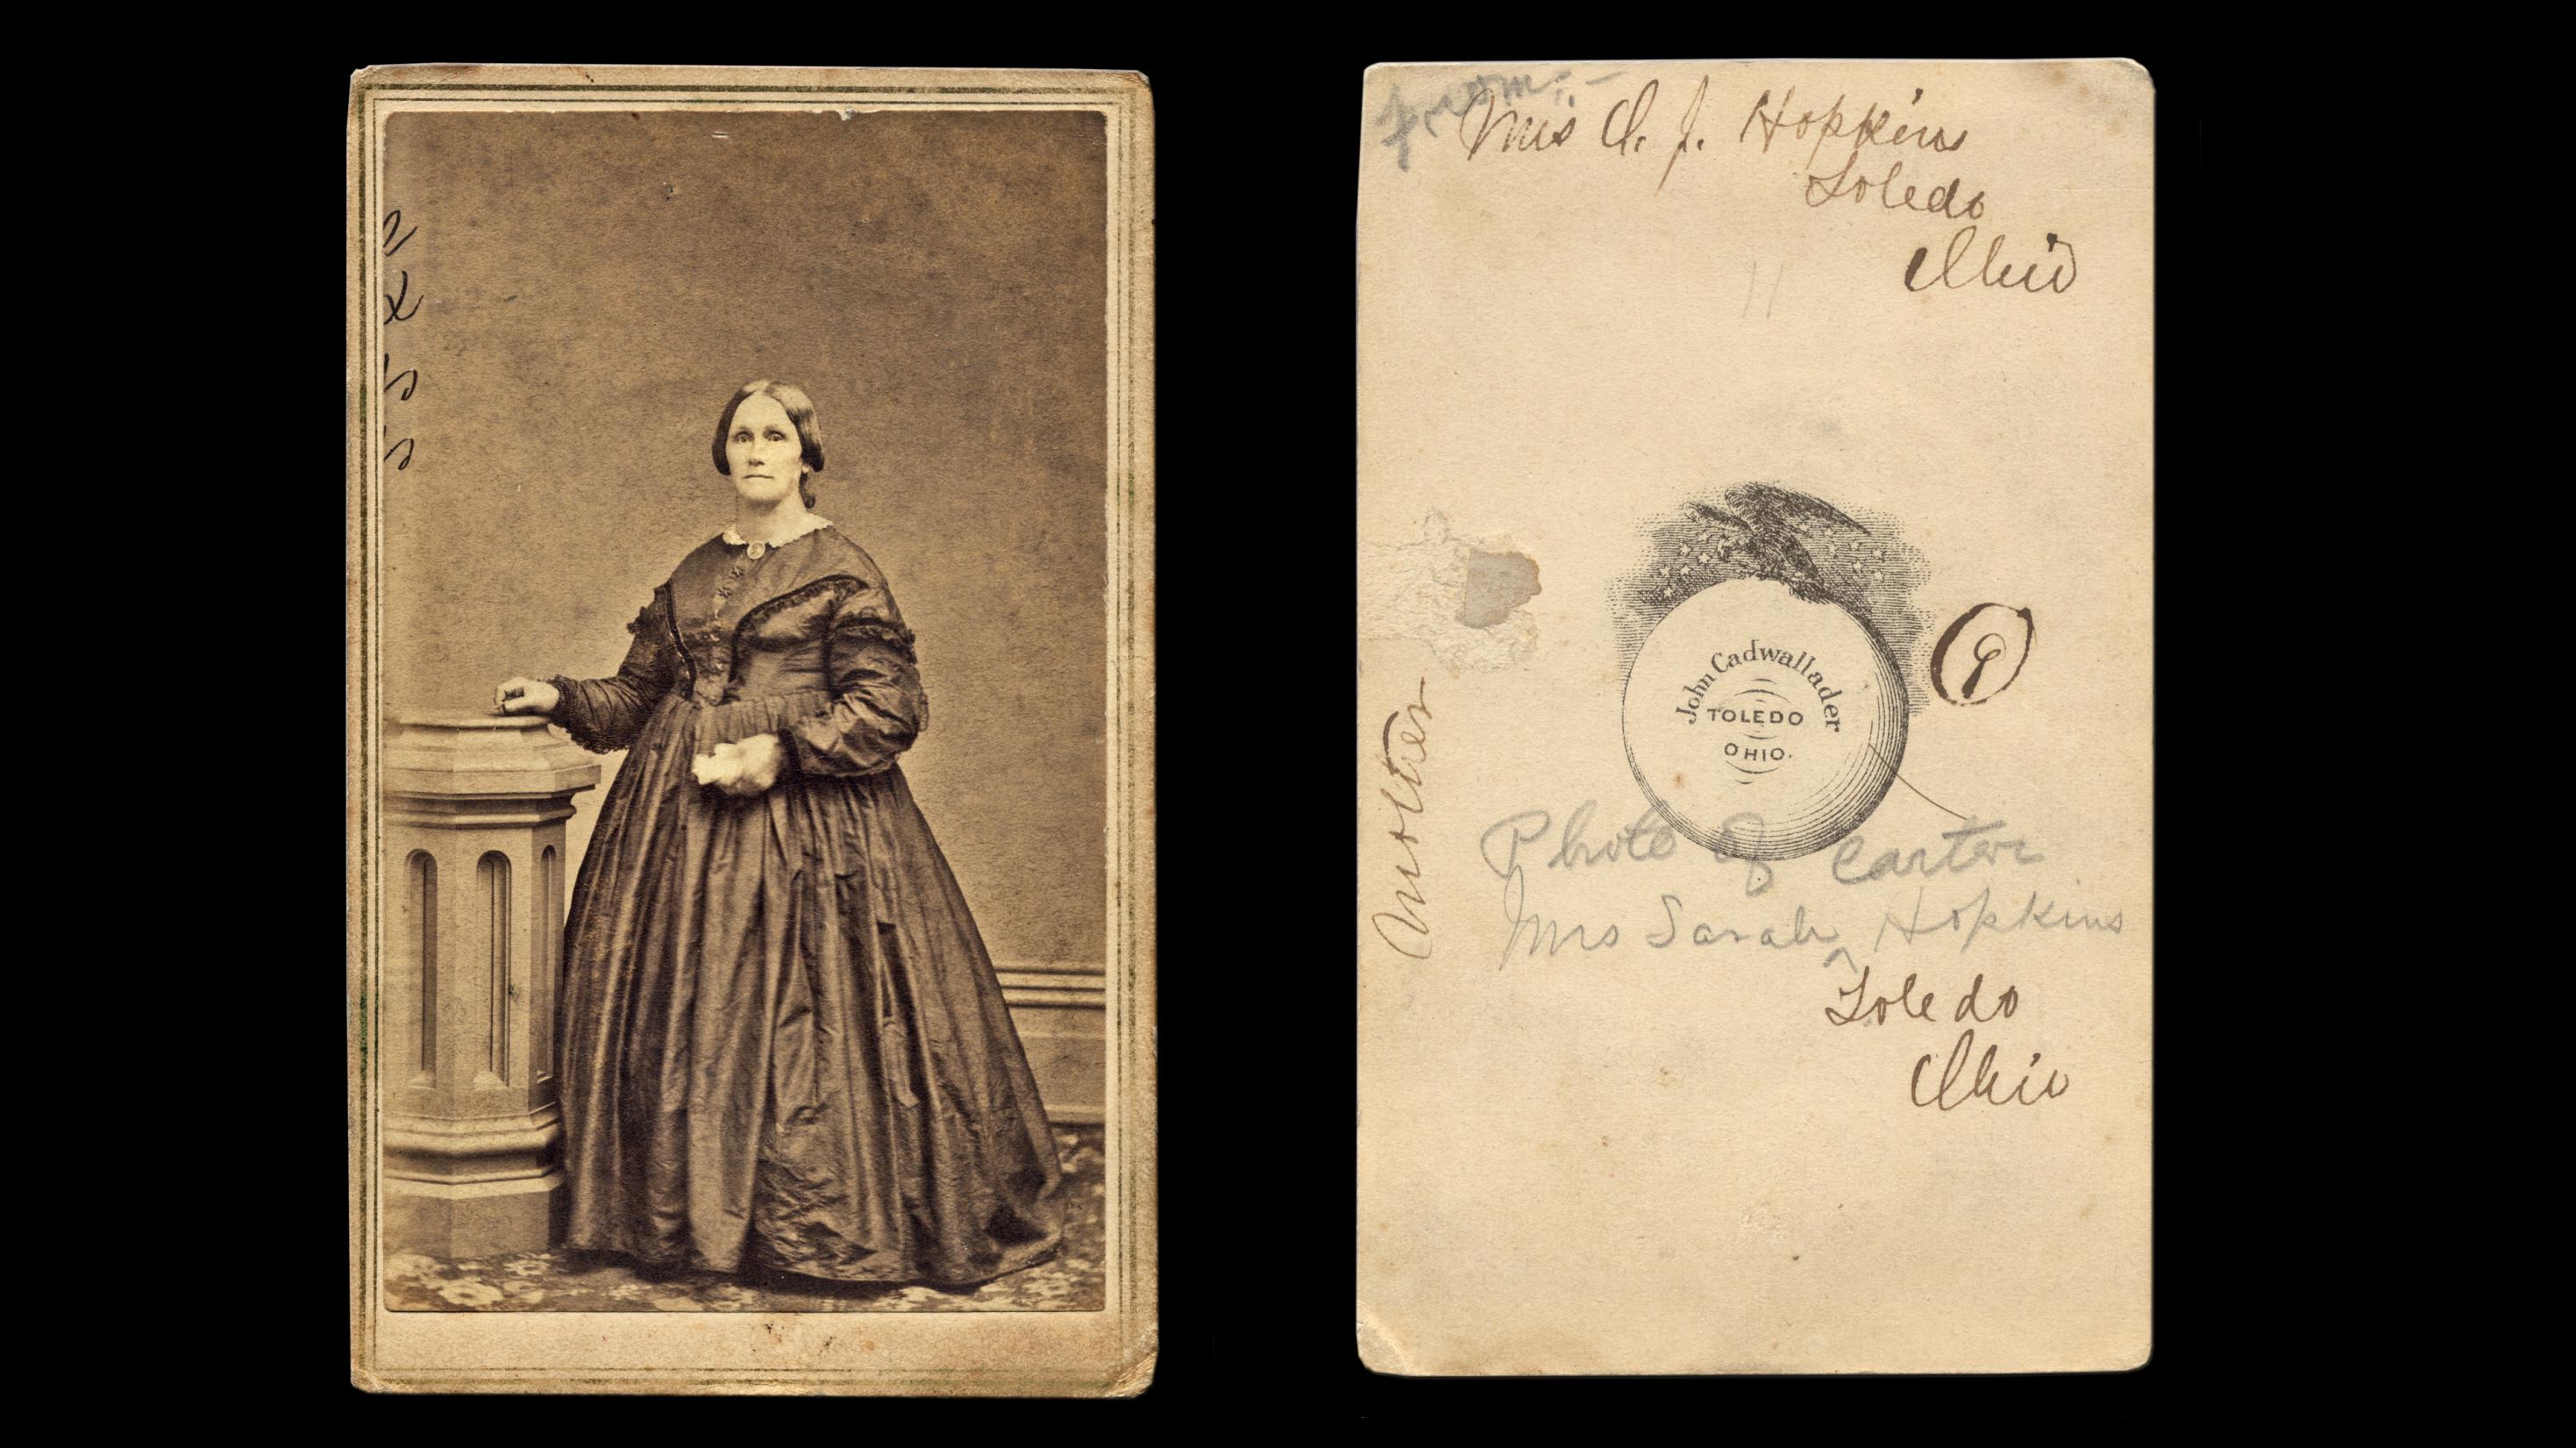 From:-
Mrs C. J. Hopkins
Toledo
Ohio
11
John Cadwallader
TOLEDO
OHIO.
9
Mother
Photo of Carter
Mrs Sarah ^ Hopkins
Toledo
Ohio